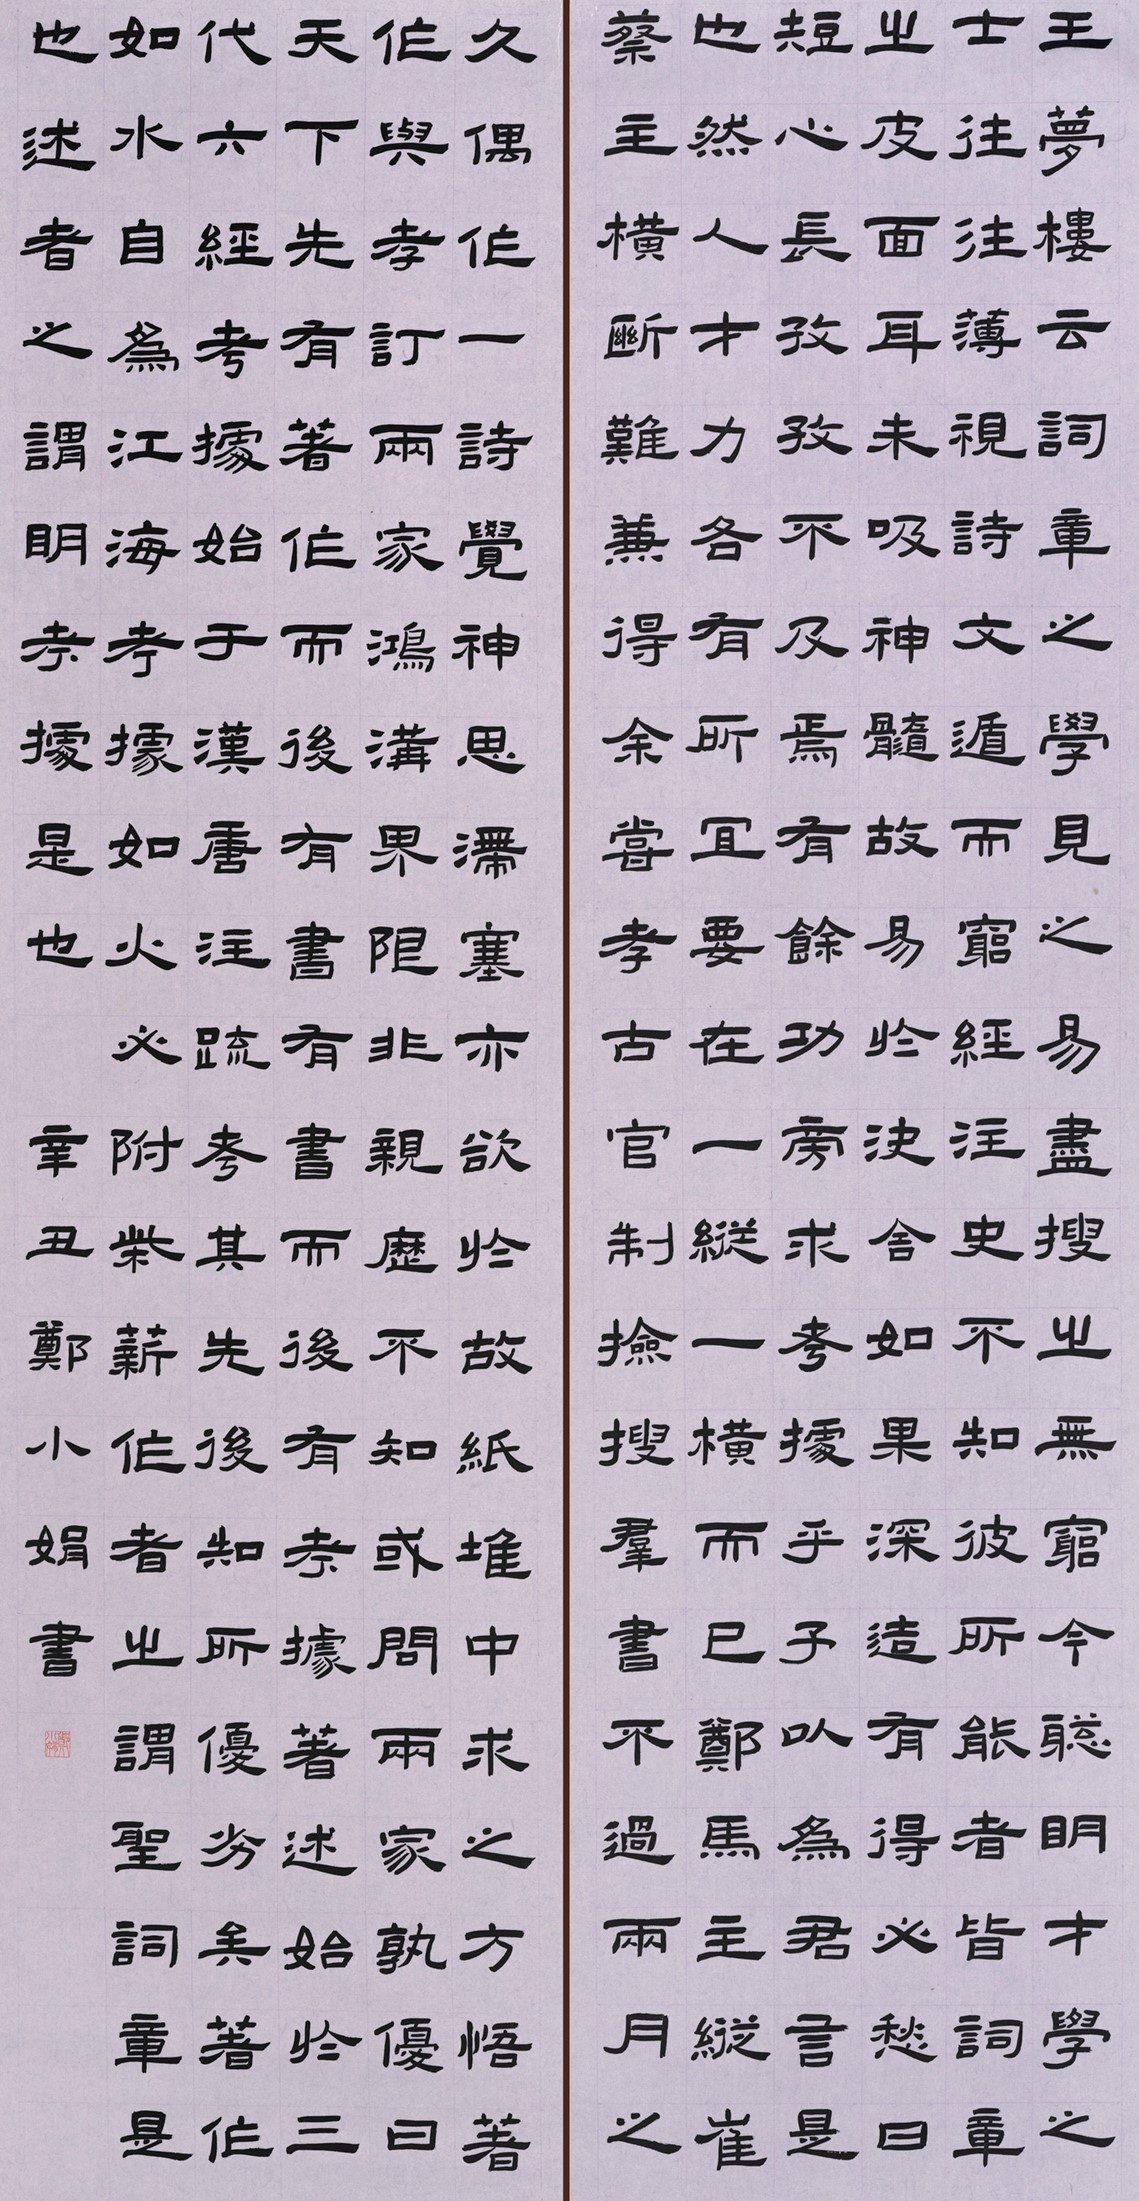 王夢樓云詞章之學見之易盡搜之無窮今聡明才學之
士往往薄視詩文遁而窮經注史不知彼所能者皆詞章
之皮面耳未吸神髓故易於決舍如果深造有得必愁日
短心長孜孜不及焉有餘功旁求考據乎予以為君言是
也然人才力各有所宜要在一縱一橫而已鄭馬主縱崔
蔡主橫斷難兼得余嘗考古官制撿搜羣書不過兩月之
久偶作一詩覺神思滯塞亦欲於故紙堆中求之方悟著
作與考訂兩家鴻溝界限非親歷不知或問兩家孰優曰
天下先有著作而後有書有書而後有考據著述始於三
代六經考據始于漢唐注疏考其先後知所優劣矣著作
如水自為江海考據如火必附柴薪作者之謂聖詞章是
也述者之謂明考據是也
辛丑鄭小娟書